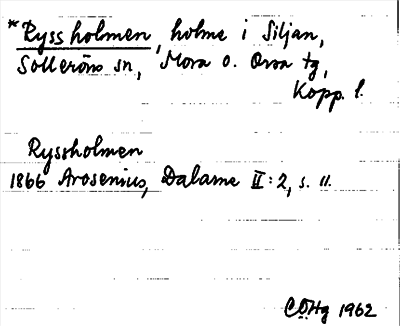 *Ryssholmen, holme i Siljan,
Sollerön sn, Mora o. Orsa tg,
Kopp. l.
Ryssholmen
1866 Arosenius, Dalarne II:2, s. 11.
CÖHg 1962